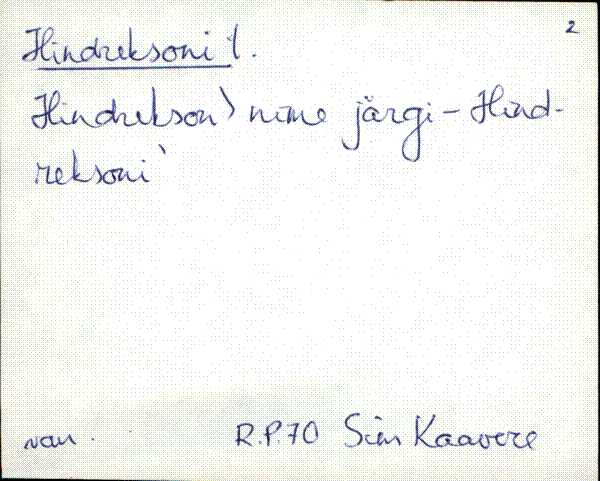 2
Hindreksoni t.
Hindrekson) nime järgi - Hind-
reksoni`
van.
R.P.70 Sim Kaavere